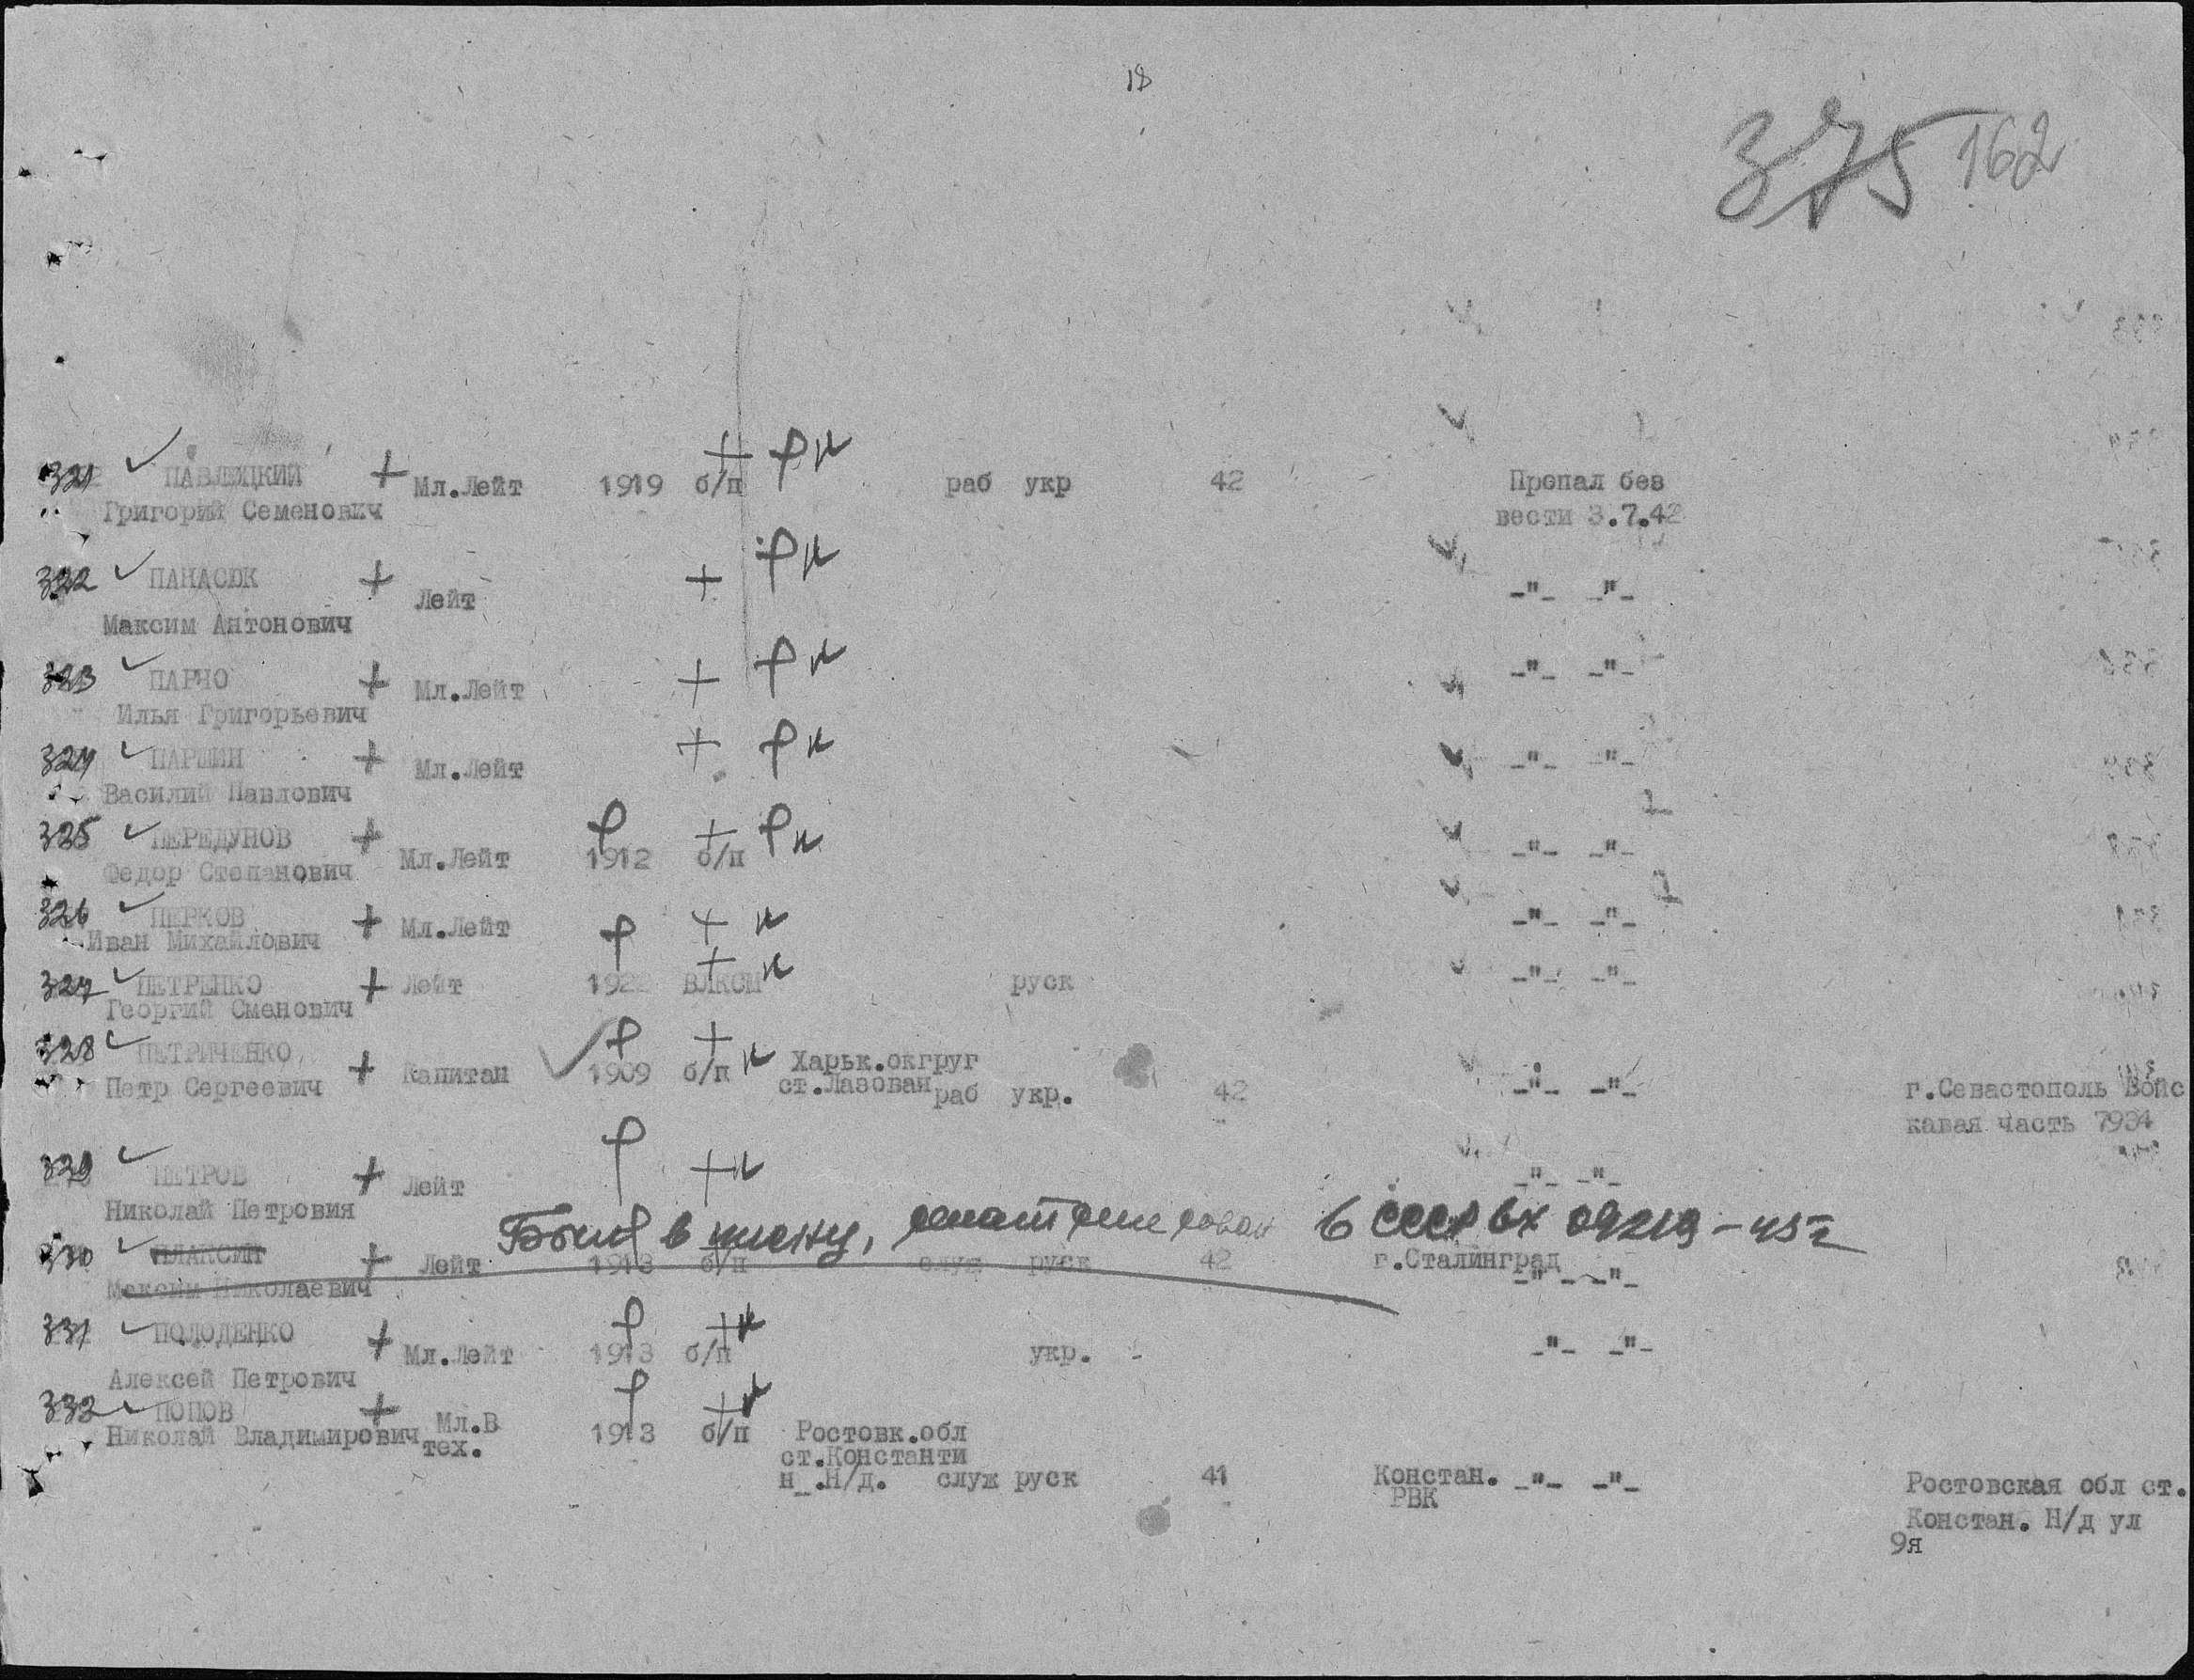 18
375 162
321 ПАВЛЮЦКИЙ Мл.Лейт 1919 б/п раб укр 42 Пропал без
Григорий Семенович вести 3.7.42
322 ПАНАСЮК Лейт -"- -"-
Максим Антонович
323 ПАРЧО Мл.Лейт -"- -"-
Илья Григорьевич
324 ПАРШИН Мл.Лейт -"- -"-
Василий Павлович
325 ПЕРЕДУНОВ Мл.Лейт 1912 б/п -"- -"-
Федор Степанович
326 ПЕРКОВ Мл.Лейт -"- -"-
Иван Михайлович
327 ПЕТРЕНКО Лейт 1922 ВЛКСМ руск -"- -"-
Георгий Сменович
328 ПЕТРИЧЕНКО Капитан 1909 б/п Харьк.округ -"- -"- г.Севастополь Войс
Петр Сергеевич ст.Лазовая раб укр. 42 кавая часть 7934
329 ПЕТРОВ Лейт -"- -"-
Николай Петровия
Был в плену, репатриирован в СССР вх 09219-45г
330 ПЛАКСИН Лейт 1918 б/п служ руск 42 г.Сталинград -"- -"-
Максим Николаевич
331 ПОЛОДЕНКО Мл.Лейт 1913 б/п укр. -"- -"-
Алексей Петрович
332 ПОПОВ Мл.В
Николай Владимирович тех. 1913 б/п Ростовк.обл
ст.Константи
н_.Н/д. служ руск 41 Констан. -"- -"- Ростовская обл ст.
РВК Констан. Н/д ул
9я